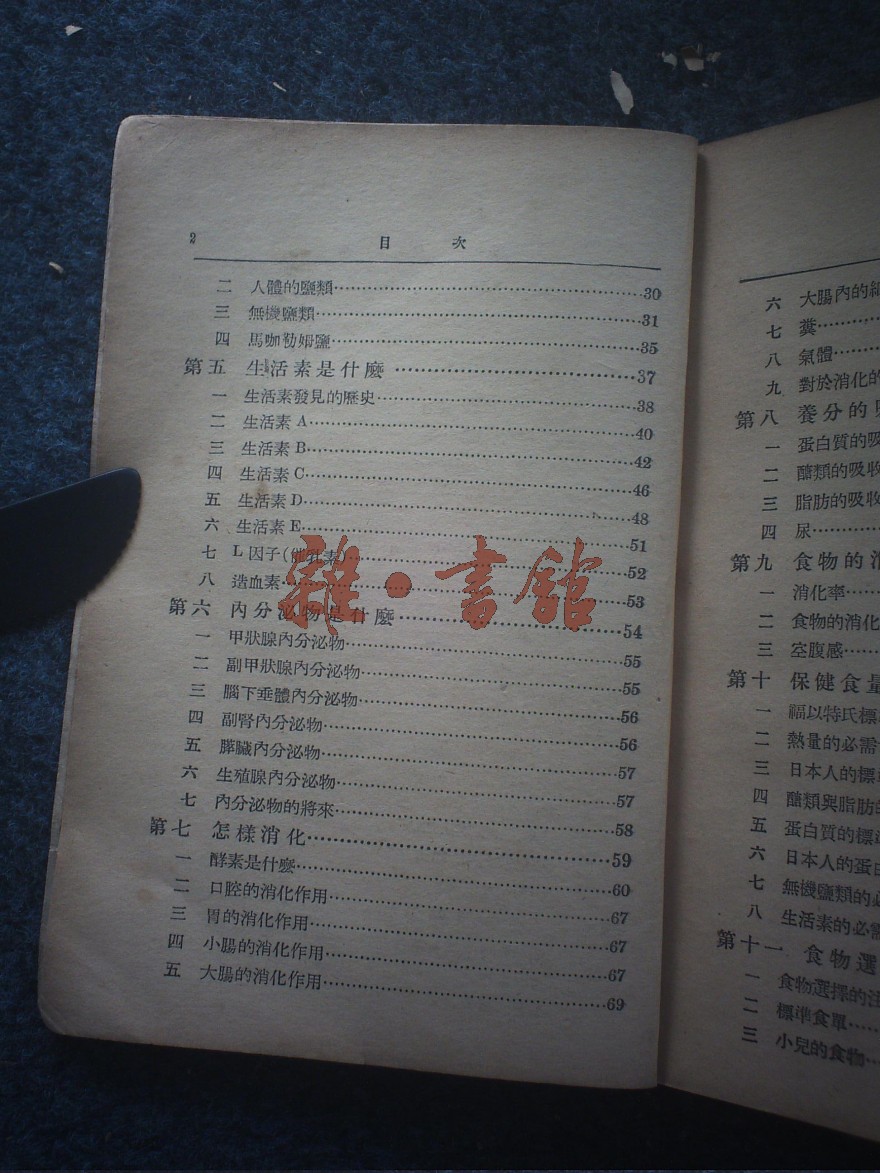 2 目次
二 人體的鹽類 30
三 無機鹽類 31
四 馬咖勒姆鹽 35
第五 生活素是什麼 37
一 生活素發見的歷史 38
二 生活素 A 40
三 生活素 B 42
四 生活素 C 46
五 生活素 D 48
六 生活素 E 51
七 L 因子(催乳素) 52
八 造血素 53
第六 內分泌物是什麼 54
一 甲狀腺內分泌物 55
二 副甲狀腺內分泌物 55
三 腦下垂體內分泌物 56
四 副腎內分泌物 56
五 膵臟內分泌物 57
六 生殖腺內分泌物 57
七 內分泌物的將來 58
第七 怎樣消化 59
一 酵素是什麼 60
二 口腔的消化作用 67
三 胃的消化作用 67
四 小腸的消化作用 67
五 大腸的消化作用 69
雜·書館
六 大腸內的
七 糞
八 氣體
九 對於消化的
第八 養分的
一 蛋白質的吸
二 醣類的吸收
三 脂肪的吸收
四 尿
第九 食物的消
一 消化率
二 食物的消化
三 空腹感
第十 保健食量
一 福以特氏標
二 熱量的必需
三 日本人的標準
四 醣類與脂肪的
五 蛋白質的標準
六 日本人的蛋白
七 無機鹽類的必
八 生活素的必需
第十一 食物選
一 食物選擇的注
二 標準食單
三 小兒的食物